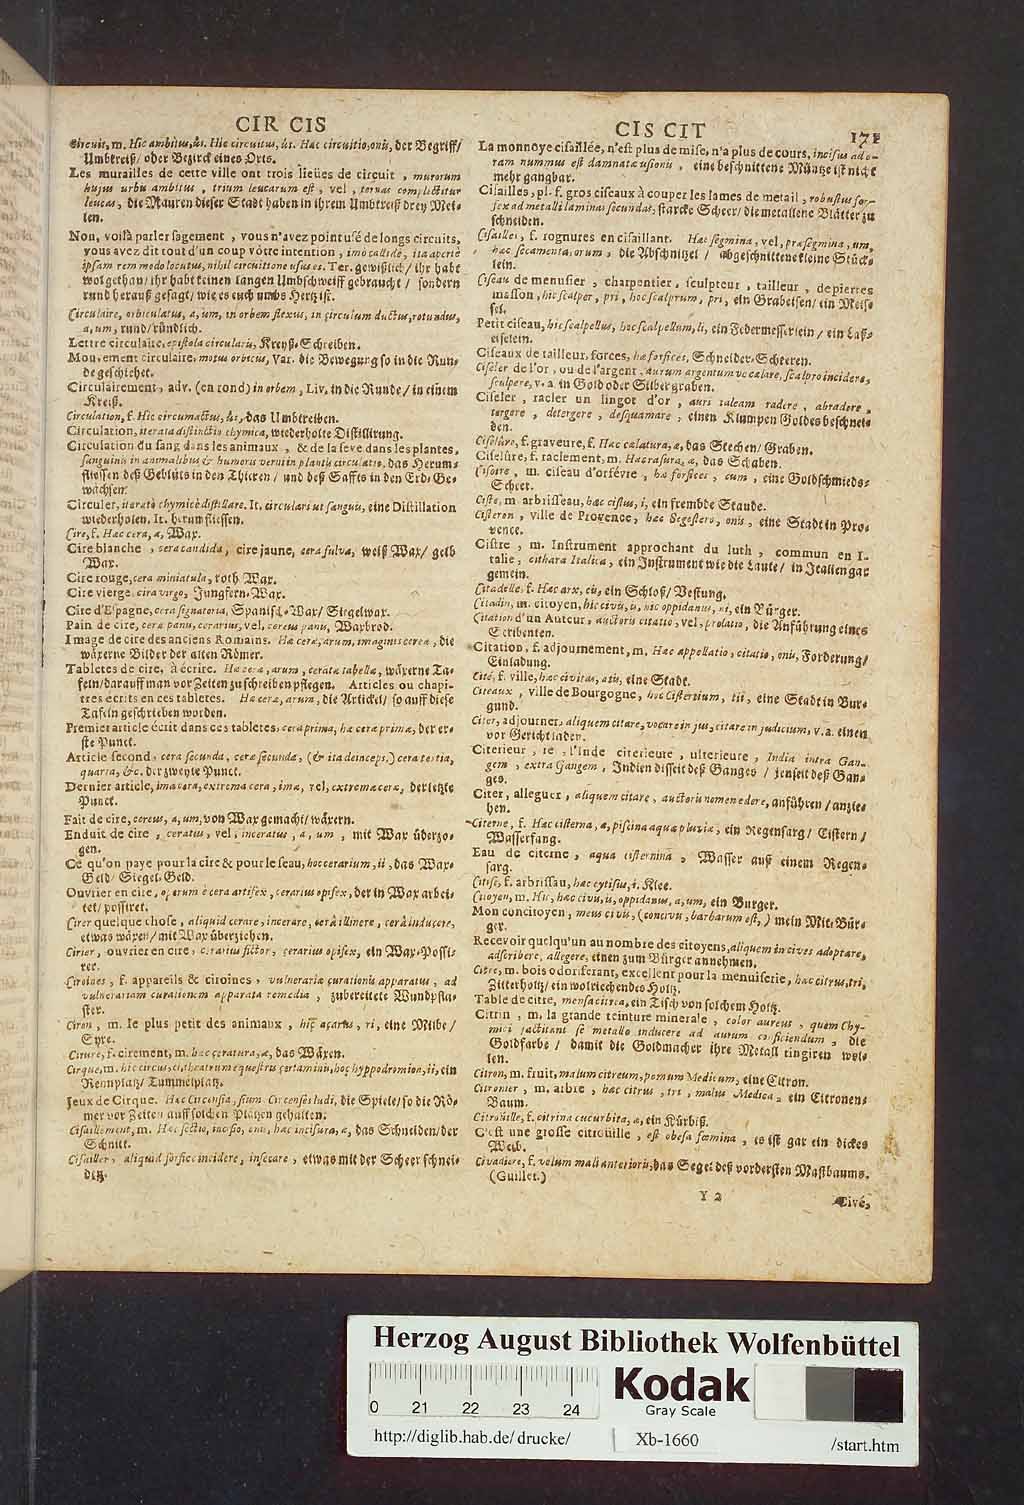 CIR CIS
Circuit, m. Hic ambitus, ûs. Hic circuitus, ûs. Hac circuitio, onis, der Begriff/
Umbkreiß/ oder Bezirck eines Orts.
Les murailles de cette ville ont trois lieües de circuit, murorum
hujus urbis ambitus, trium leucarum est, vel, tornas complectitur
leucas, die Mauren dieser Stadt haben in ihrem Umbkreiß drey Mei-
len.
Non, voilà parler sagement, vous n'avez point usé de longs circuits,
vous avez dit tout d'un coup vôtre intention, imò callidè, ita apertè
ipsam rem modo locutus, nihil circuitione usus es. Ter. gewißlich/ ihr habt
wol gethan/ ihr habt keinen langen Umbschweiff gebraucht/ sondern
rund herauß gesagt/ wie es euch umbs Hertz ist.
Circulaire, orbiculatus, a, um, in orbem flexus, in circulum ductus, rotundus,
a, um, rund/ ründlich.
Lettre circulaire, epistola circularis, Kreyß-Schreiben.
Mouvement circulaire, motus orbicus, Var. die Bewegung so in die Run-
de geschiehet.
Circulairement, adv. (en rond) in orbem, Liv. in die Runde/ in einem
Kreiß.
Circulation, f. Hic circumactus, ûs, das Umbtreiben.
Circulation, iterata distinctio chymica, wiederholte Distillirung.
Circulation du sang dans les animaux, & de la seve dans les plantes,
sanguinis in animalibus & humoris verni in plantis circulatio, das Herum-
fliessen deß Geblüts in den Thieren/ und deß Saffts in den Erd-Ge-
wächsen.
Circuler, iteratò chymicè distillare. It. circulari ut sanguis, eine Distillation
wiederholen. It. herumfliessen.
Cire, f. Hac cera, æ, Wax.
Cire blanche, cera candida, cire jaune, cera fulva, weiß Wax/ gelb
Wax.
Cire rouge, cera miniatula, roth Wax.
Cire vierge, cira virgo, Jungfern-Wax.
Cire d'Espagne, cera signatoria, Spanisch-Wax/ Siegelwax.
Pain de cire, ceræ panis, cerarius, vel, cereus panis, Waxbrod.
Image de cire des anciens Romains. Hæ ceræ, arum, imagines cereæ, die
wäxerne Bilder der alten Römer.
Tabletes de cire, à écrire. Hæ ceræ, arum, ceratæ tabellæ, wäxerne Ta-
feln/ darauff man vor Zeiten zu schreiben pflegen. Articles ou chapi-
tres écrits en ces tabletes. Hæ ceræ, arum, die Artickel/ so auff diese
Tafeln geschrieben worden.
Premier article écrit dans ces tabletes, cera prima, hæ ceræ prima, der er-
ste Punct.
Article second, cera secunda, ceræ secundæ, (& ita deinceps.) cera tertia,
quarta, &c. der zweyte Punct.
Dernier article, ima cera, extrema cera, imæ, vel, extremæ ceræ, der letzte
Punct.
Fait de cire, cereus, a, um, von Wax gemacht/ wäxern.
Enduit de cire, ceratus, vel, inceratus, a, um, mit Wax überzo-
gen.
Ce qu'on paye pour la cire & pour le seau, hoc cerarium, ii, das Wax-
Geld/ Siegel-Geld.
Ouvrier en cire, operum è cera artifex, cerarius opifex, der in Wax arbei-
tet/ possiret.
Cirer quelque chose, aliquid cerare, incerare, cerâ illinere, cerâ inducere,
etwas wäxen/ mit Wax überziehen.
Cirier, ouvrier en cire, cerarius fictor, cerarius opifex, ein Wax-Possi-
rer.
Ciroines, f. appareils & ciroines, vulneraria curationis apparatus, ad
vulnerariam curationem apparata remedia, zubereitete Wundpfla-
ster.
Ciron, m. le plus petit des animaux, hic acarus, ri, eine Milbe/
Syre.
Citure, f. cirement, m. hac ceratura, æ, das Wäxen.
Cirque, m. hic circus, ci, theatrum equestris certaminis, hoc hyppodromion, ii, ein
Rennplatz/ Tummelplatz.
Jeux de Cirque. Hac Circensia, sium, Circenses ludi, die Spiele/ so die Rö-
mer vor Zeiten auff solchen Plätzen gehalten.
Cisaillement, m. Hac sectio, incisio, onis, hac incisura, æ, das Schneiden/ der
Schnitt.
Cisailler, aliquid forfice incidere, insecare, etwas mit der Scheer schnei-
den.
CIS CIT
171
La monnoye cisaillée, n'est plus de mise, n'a plus de cours, incisus ado-
ram nummus est damnatæ usionis, eine beschnittene Müntze ist nicht
mehr gangbar.
Cisailles, pl. f. gros ciseaux à couper les lames de metail, robustus for-
fex ad metalli laminas secundas, starcke Scheer/ die metallene Blätter zu
schneiden.
Cisailles, f. rognures en cisaillant. Hac segmina, vel, præsegmina, um,
hac secamenta, orum, die Abschnitzel/ abgeschnittene kleine Stück-
lein.
Ciseau de menusier, charpentier, sculpteur, tailleur, de pierres
masson, hic scalper, pri, hoc scalprum, pri, ein Grabeisen/ ein Meis-
sel.
Petit ciseau, hic scalpellus, hoc scalpellum, li, ein Federmesserlein/ ein Laß-
eiselein.
Ciseaux de tailleur, forces, hæ forfices, Schneider-Scheeren.
Ciseler de l'or, ou de l'argent, aurum argentum ve cælare, scalpro incidere,
sculpere, v. a. in Gold oder Silber graben.
Ciseler, racler un lingot d'or, auri taleam radere, abradere,
tergere, detergere, desquamare, einen Klumpen Goldes beschnei-
den.
Ciselure, f. graveure, f. Hac cælatura, æ, das Stechen/ Graben.
Ciselure, f. raclement, m. Hac rasura, æ, das Schaben.
Cisoire, m. ciseau d'orfévre, hæ forfices, cum, eine Goldschmieds-
Scheer.
Ciste, m. arbrisseau, hac cistus, i, ein frembde Staude.
Cisteron, ville de Provence, hac Segestero, onis, eine Stadt in Pro-
vence.
Cistre, m. Instrument approchant du luth, commun en I-
talie, cithara Italica, ein Instrument wie die Laute/ in Italien gar
gemein.
Citadelle, f. Hac arx, cis, ein Schloß/ Vestung.
Citadin, m. citoyen, hic civis, is, hic oppidanus, ni, ein Bürger.
Citation d'un Auteur, auctoris citatio, vel, prolatio, die Anführung eines
Scribenten.
Citation, f. adjournement, m. Hac appellatio, citatio, onis, Forderung/
Einladung.
Cité, f. ville, hac civitas, atis, eine Stadt.
Citeaux, ville de Bourgogne, hoc Cistertium, tii, eine Stadt in Bur-
gund.
Citer, adjourner, aliquem citare, vocare in jus, citare in judicium, v. a. einen
vor Gericht laden.
Citerieur, re, l'Inde citerieure, ulterieure, India intra Gan-
gem, extra Gangem, Indien disseit deß Ganges/ jenseit deß Gan-
ges.
Citer, alleguer, aliquem citare, auctoris nomen edere, anführen/ anzie-
hen.
Citerne, f. Hac cisterna, æ, piscina aquæ pluviæ, ein Regensarg/ Cistern/
Wasserfang.
Eau de citerne, aqua cisternina, Wasser auß einem Regen-
sarg.
Citise, f. arbrissau, hac cytisus, i. Klee.
Citoyen, m. Hic, hæc civis, is, oppidanus, a, um, ein Burger.
Mon concitoyen, meus civis, (concivis, barbarum est,) mein Mit-Bür-
ger.
Recevoir quelqu'un au nombre des citoyens, aliquem in cives adoptare,
adscribere, allegere, einen zum Bürger annehmen.
Citre, m. bois odoriferant, excellent pour la menuiserie, hac citrus, tri,
Zitterholtz/ ein wolriechendes Holtz.
Table de citre, mensa citrea, ein Tisch von solchem Holtz.
Citrin, m. la grande teinture minerale, color aureus, quem Chy-
mici jactitant se metallo inducere ad aurum conficiendum, die
Goldfarbe/ damit die Goldmacher ihre Metall tingiren wol-
len.
Citron, m. fruit, malum citreum, pomum Medicum, eine Citron.
Citronier, m. arbre, hæc citrus, tri, malus Medica, ein Citronen-
Baum.
Citroüille, f. citrina cucurbita, æ, ein Kürbiß.
C'est une grosse citroüille, est obesa fœmina, es ist gar ein dickes
Weib.
Civadiere, f. velum mali anterioris, das Segel deß vordersten Mastbaums.
(Guillet.)
Y 2
Civé,
Herzog August Bibliothek Wolfenbüttel
0 21 22 23 24
Kodak
Gray Scale
http://diglib.hab.de/drucke/
Xb-1660
/start.htm